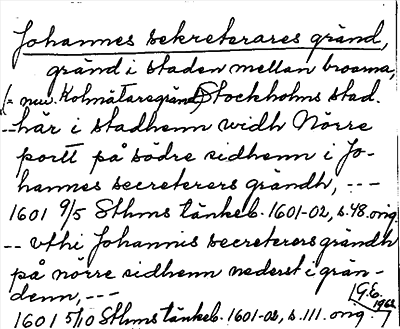 Johannes sekreterares gränd,
gränd i staden mellan broarna,
(= nuv. Kolmätaregränd) Stockholms stad.
-- här i stadhenn widh Nörre
portt på södre sidhenn i Jo-
hannes secreterers grändh, ---
1601 9/5 Sthms tänkeb. 1601-02, s. 48. orig.
-- vthi Johannis secreterers grändh
på nörre sidhenn nederst i grän-
denn, ---
G.E. 1962
1601 5/10 Sthms tänkeb. 1601-02, s. 111. orig.